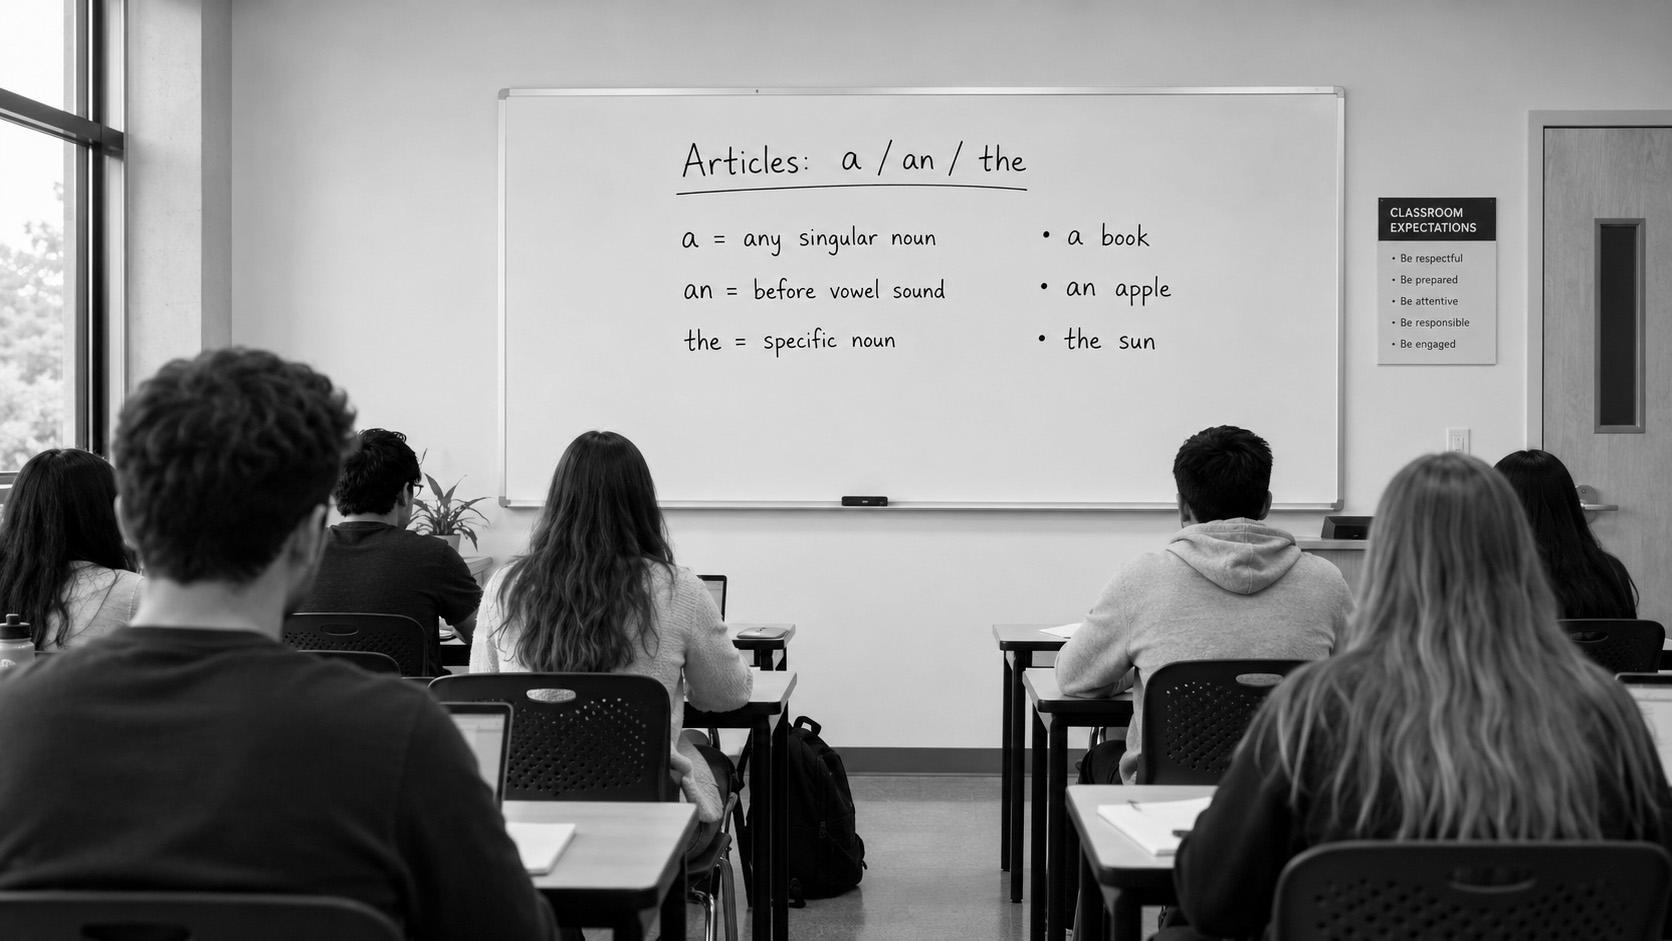 Articles: a / an / the
a = any singular noun
• a book
an = before vowel sound
• an apple
the = specific noun
• the sun
CLASSROOM
EXPECTATIONS
• Be respectful
• Be prepared
• Be attentive
• Be responsible
• Be engaged